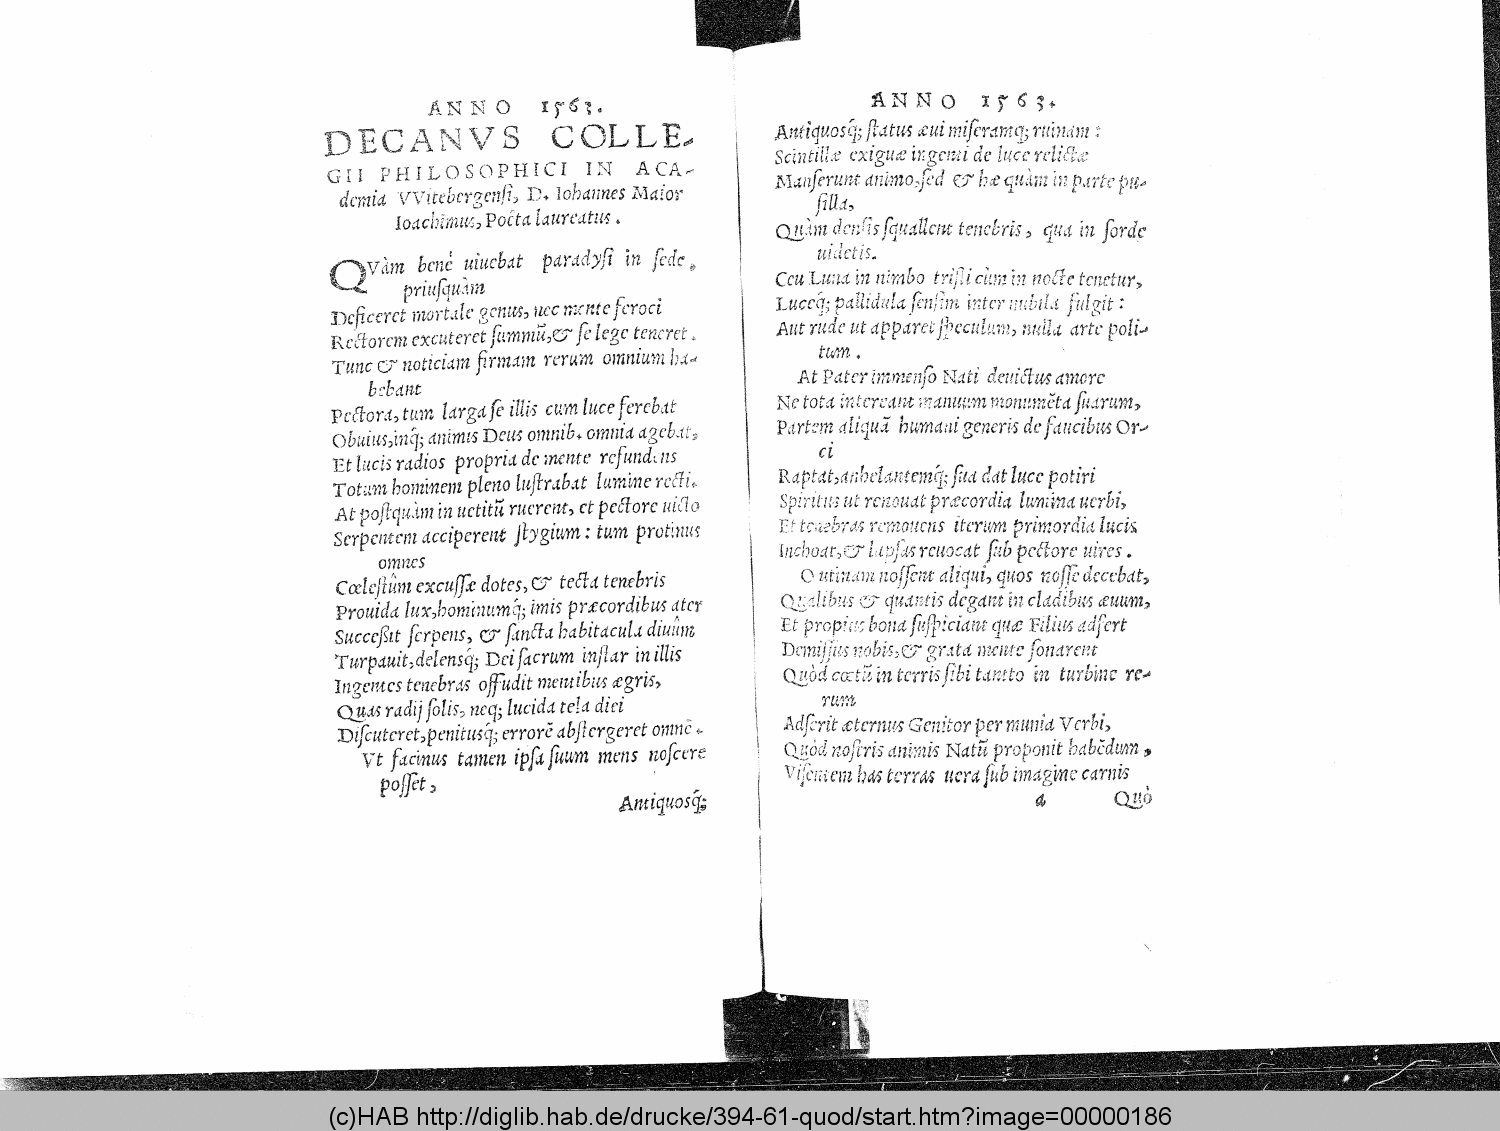 ANNO 1563.
DECANVS COLLE-
GII PHILOSOPHICI IN ACA-
demia VVitebergensi, D. Iohannes Maior
Ioachimus, Poëta laureatus.
QVàm benè uiuebat paradysi in sede,
priusquàm
Deficeret mortale genus, nec mente feroci
Rectorem excuteret summũ, & se lege teneret.
Tunc & noticiam firmam rerum omnium ha-
bebant
Pectora, tum larga se illis cum luce ferebat
Obuius, inq́; animis Deus omnib. omnia agebat,
Et lucis radios propria de mente refundens
Totum hominem pleno lustrabat lumine recti.
At postquàm in uetitũ ruerent, et pectore uicto
Serpentem acciperent stygium: tum protinus
omnes
Cœlestûm excussæ dotes, & tecta tenebris
Prouida lux, hominumq́; imis præcordibus ater
Successit serpens, & sancta habitacula diuûm
Turpauit, delensq́; Dei sacrum instar in illis
Ingentes tenebras offudit mentibus ægris,
Quas radij solis, neq; lucida tela diei
Discuteret, penitusq́; errorẽ abstergeret omnẽ.
Vt facinus tamen ipsa suum mens noscere
posset,
Antiquosq́;
ANNO 1563.
Antiquosq́; status æui miseramq; ruinam:
Scintillæ exiguæ ingenti de luce relictæ
Manserunt animo, sed & hæ quàm in parte pu-
silla,
Quàm densis squallent tenebris, qua in sorde
uidetis.
Ceu Luna in nimbo tristi cùm in nocte tenetur,
Luceq́; pallidula sensim inter nubila fulgit:
Aut rude ut apparet speculum, nulla arte poli-
tum.
At Pater immenso Nati deuictus amore
Ne tota intereant manuum monumẽta suarum,
Partem aliquã humani generis de faucibus Or-
ci
Raptat, anhelantemq́; sua dat luce potiri
Spiritus ut renouat præcordia lumina uerbi,
Et tenebras remouens iterum primordia lucis
Inchoat, & lapsas reuocat sub pectore uires.
O utinam nossent aliqui, quos nosse decebat,
Qualibus & quantis degant in cladibus æuum,
Et propius bona suspiciant quæ Filius adfert
Demissus nobis, & grata mente sonarent
Quòd cœtũ in terris sibi tantto in turbine re-
rum
Adserit æternus Genitor per munia Verbi,
Quòd nostris animis Natũ proponit habẽdum,
Visentem has terras uera sub imagine carnis
a Quò
(c)HAB http://diglib.hab.de/drucke/394-61-quod/start.htm?image=00000186